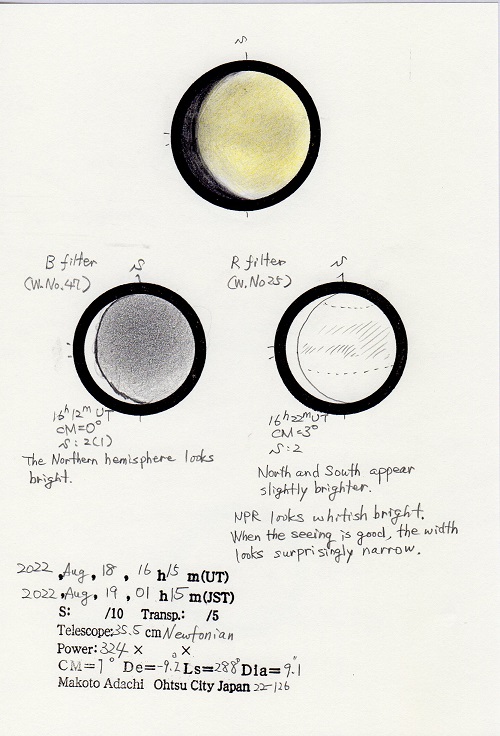 N
B filter
(W.No.47)
N
R filter
(W.No25)
N
16h12m UT
CM=0°
N:2(1)
The Northern hemisphere looks
bright.
16h22mUT
CM=3°
N:2
North and South appear
slightly brighter.
NPR looks whitish bright.
When the seeing is good, the width
looks surprisingly narrow.
2022,Aug,18,16h15m(UT)
2022,Aug,19,01h15m(JST)
S: /10 Transp.: /5
Telescope:35.5 cm Newtonian
Power:324 × ×
CM=1° De=-9.2° Ls=288° Dia=9."1
Makoto Adachi Ohtsu City Japan 22-126